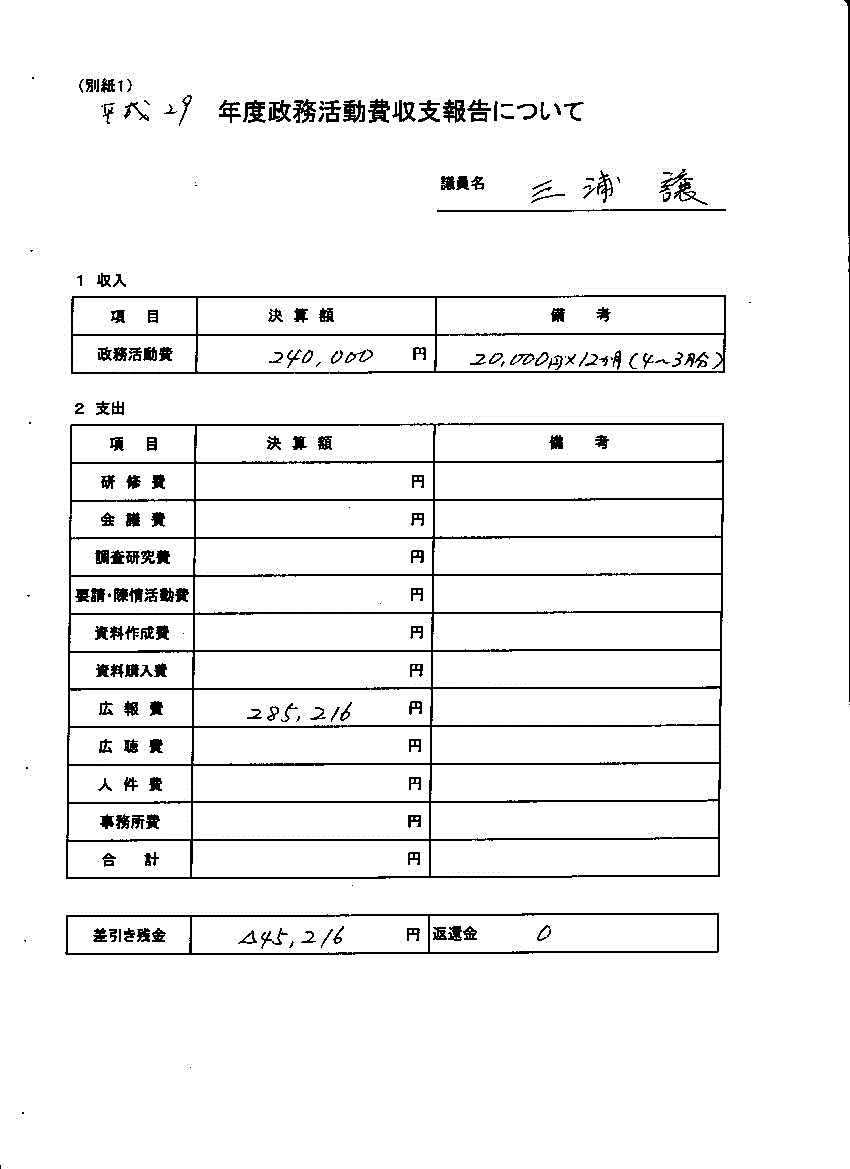 (別紙1)
平成29 年度政務活動費収支報告について
議員名 三浦 譲
1 収入
項 目 決算額 備 考
政務活動費 240,000 円 20,000円×12ヵ月(4~3月分)
2 支出
項 目 決算額 備 考
研修費 円
会議費 円
調査研究費 円
要請・陳情活動費 円
資料作成費 円
資料購入費 円
広報費 285,216 円
広聴費 円
人件費 円
事務所費 円
合 計 円
差引き残金 △45,216 円 返還金 0